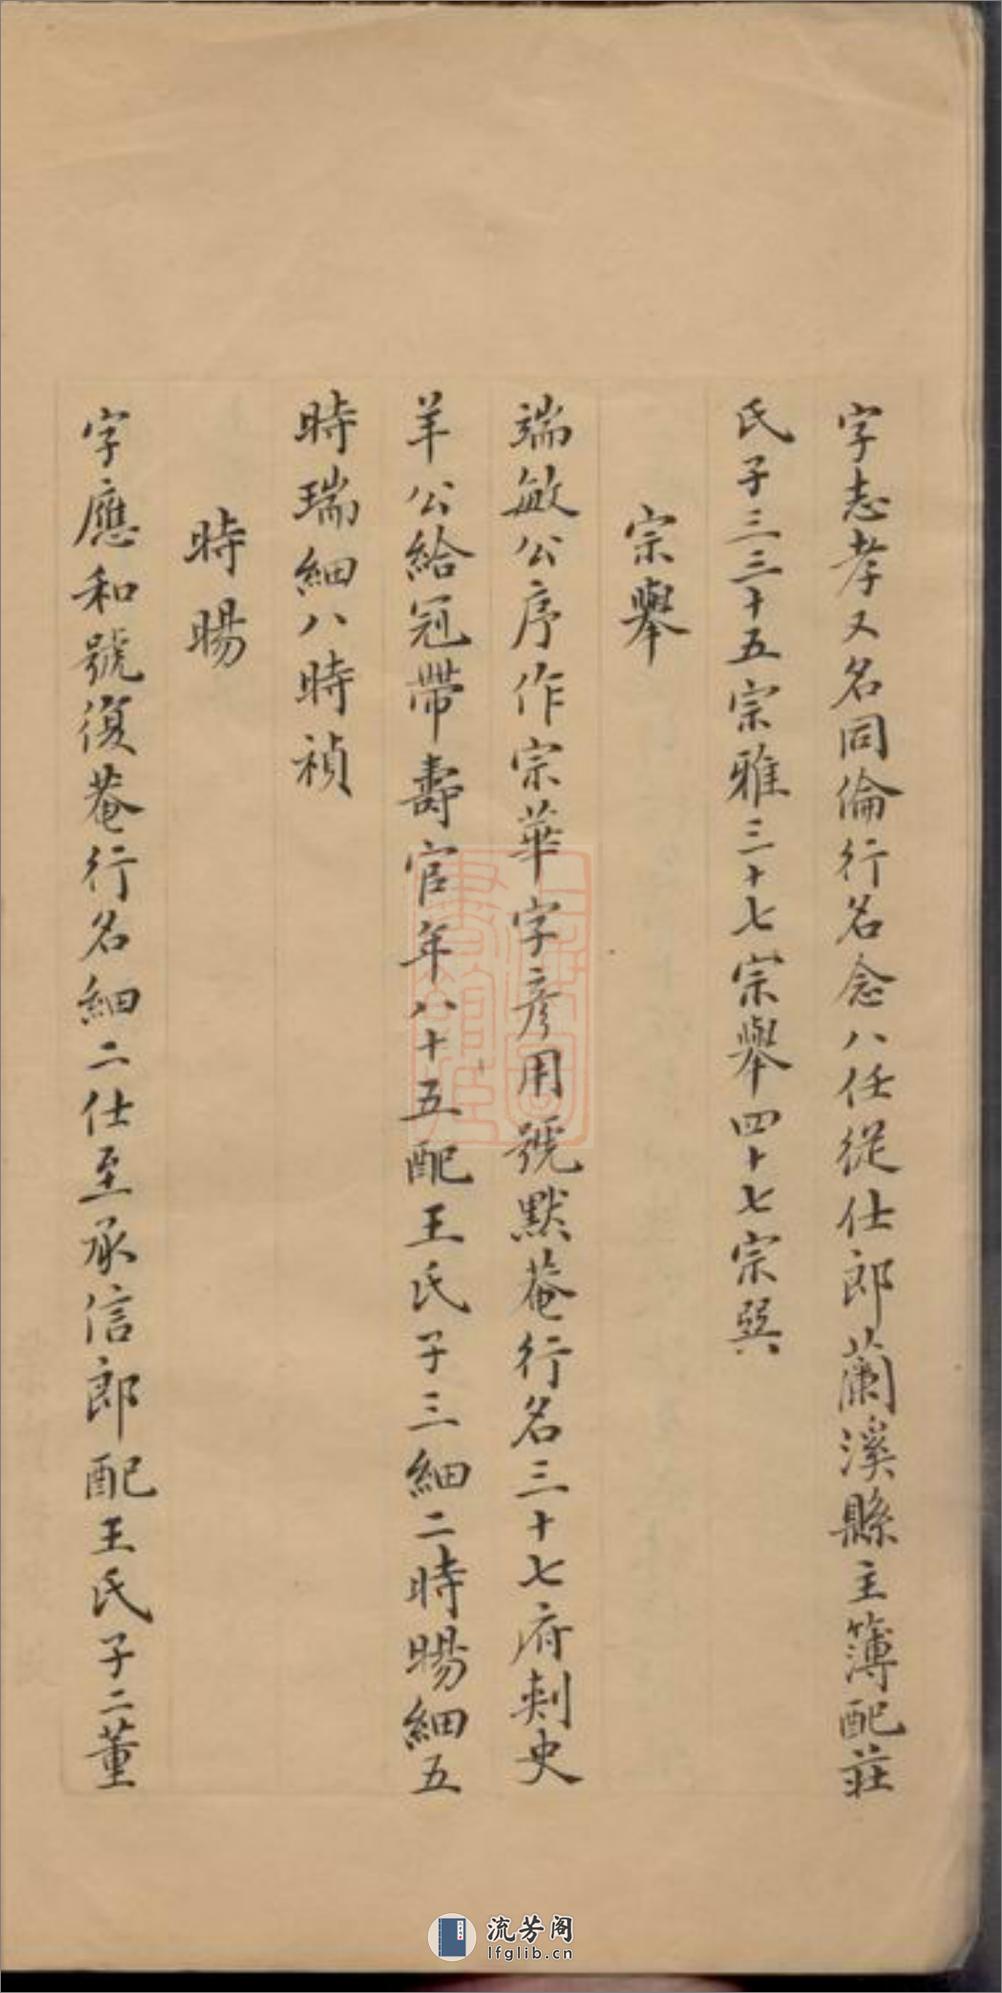 字志孝又名同倫行名念八任從仕郎蘭溪縣主簿配莊
氏子三三十五宗雅三十七宗舉四十七宗巽
宗舉
端敏公序作宗華字彥用號默菴行名三十七府刺史
羊公給冠帶壽官年八十五配王氏子三細二時暘細五
時瑞細八時禎
時暘
字應和號復菴行名細二仕至承信郎配王氏子二董
上海圖
書館藏
流芳阁
lfglib.cn